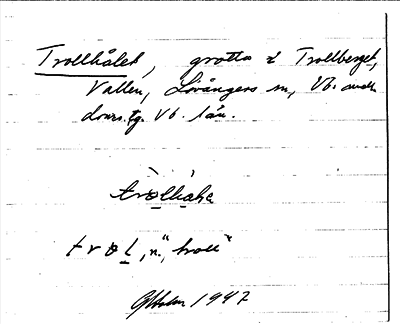 Trollhålet, grotta i Trollberget,
Vallen, Lövångers sn, Vb.
Vb. län.
trolhåłe
trol, n. "troll"
1947